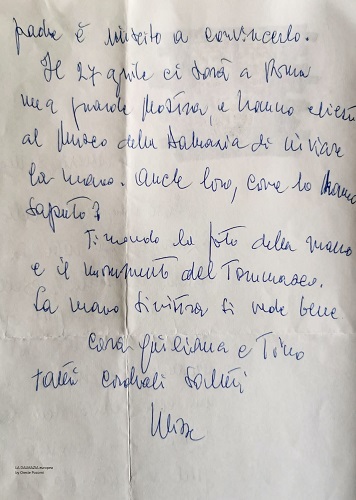 padre è riuscito a convincerlo.
Il 27 aprile ci sarà a Roma
una grande Mostra, e hanno chiesto
al Museo della Dalmazia di inviare
la mano. Anche loro, come lo hanno
saputo?
Ti mando la foto della mano
e il monumento del Tommaseo.
La mano sinistra si vede bene
Cara Giuliana e Tino
tanti cordiali saluti
LA DALMAZIA